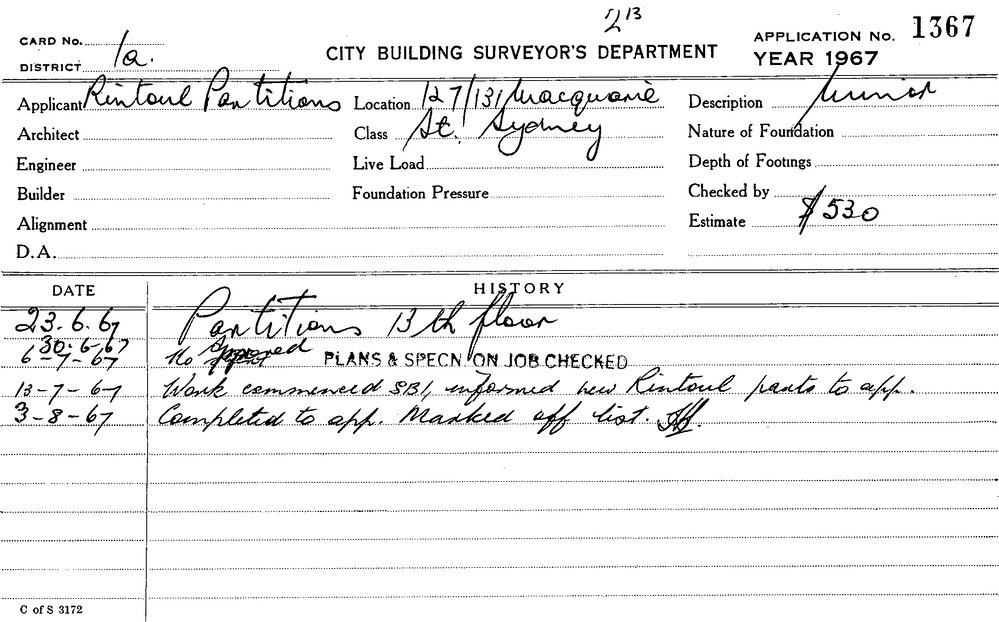 2 13
CARD No. 1a. CITY BUILDING SURVEYOR'S DEPARTMENT APPLICATION No. 1367
DISTRICT YEAR 1967
Applicant Rintoul Partitions Location 127/131 Macquarie Description Minor
Architect Class St. Sydney Nature of Foundation
Engineer Live Load Depth of Footings
Builder Foundation Pressure Checked by
Alignment Estimate $530
D.A.
DATE HISTORY
23.6.67 Partitions 13th floor
30.6.67 Approved
6-7-67 No PLANS & SPECN ON JOB CHECKED
13-7-67 Work commenced SBI, informed Rintoul parts to app.
3-8-67 Completed to app. Marked off list.
C of S 3172